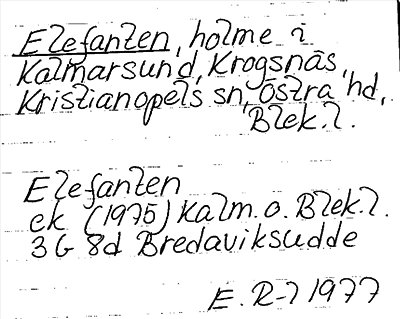 Elefanten, holme i
Kalmarsund, Krogsnäs,
Kristianopels sn, Östra hd,
Blek.l.
Elefanten
ek (1975) Kalm.o.Blek.l.
3G 8d Bredaviksudde
E. R-l 1977